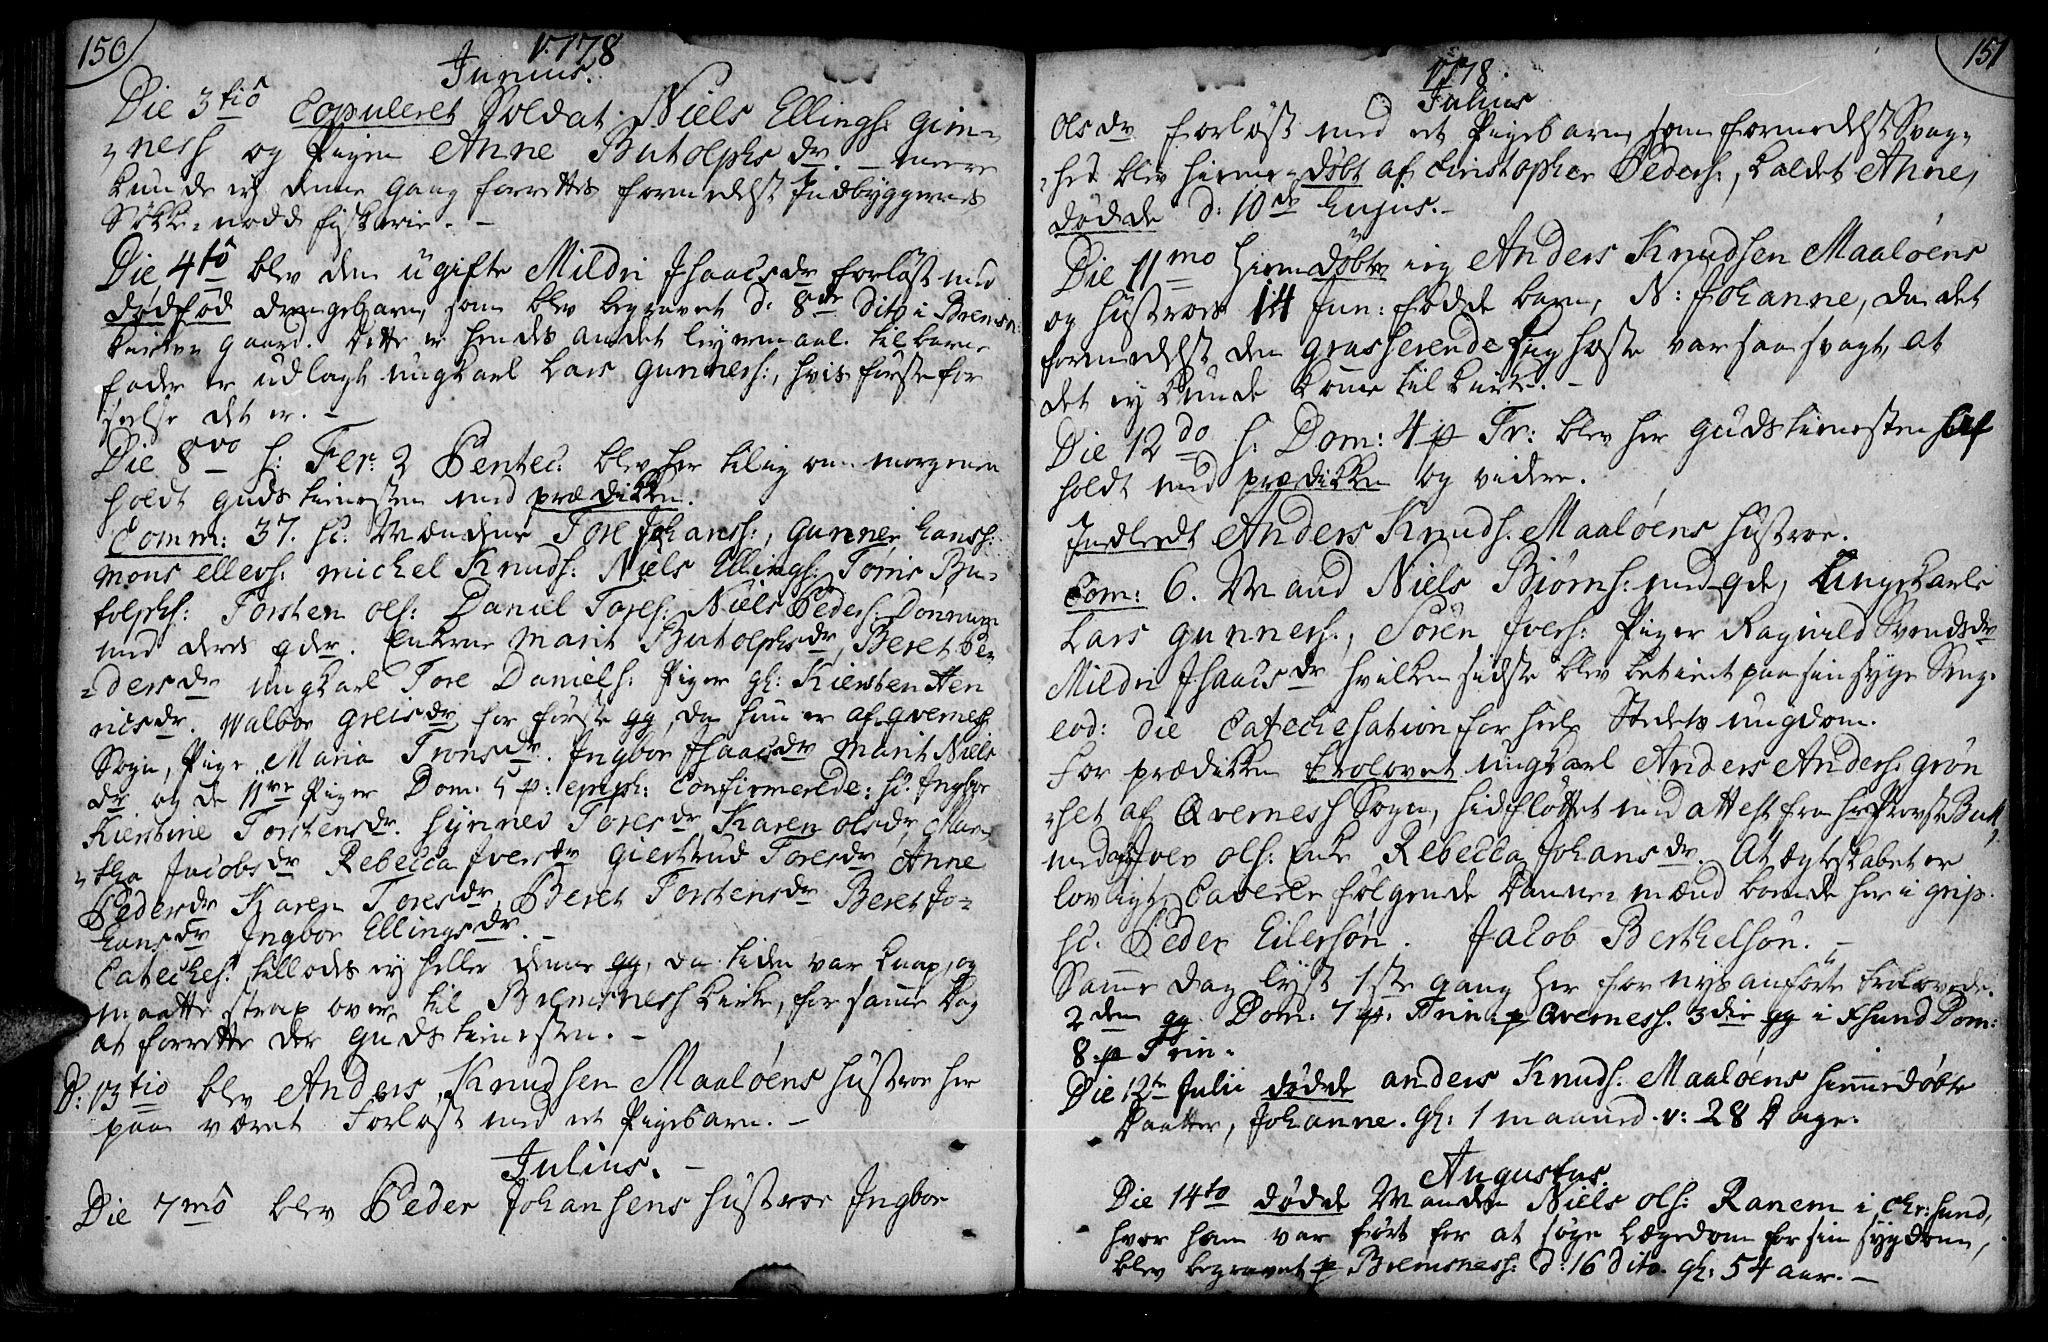 150
1778
Junius.
Die 3tio Copuleret Soldat Niels Ellings: Gim=
=ness og Pigen Anne Butolphsdr. – meere
kunde ej denne gang forrettes formedelst Indbyggernes
fiskerie. –
Die 4to blev den ugifte Mildri Isaacsdr forløst med
dødfød drengebarn, som blev begravet d: 8de dito i Bremsn:
kirke gaard. Dette er hendes andet leyermaal. til barne
fader er udlagt ungkarl Lars Gunners:, hvis første for
seelse det er. –
Die 8vo h: Fer: 2 Pentec: blev her tilig om morgenen
holdt Guds tienesten med prædikken.
Comm: 37. sc: Mændene Tore Johans:, Gunner Hans:
Mons Ellevs: Michel Knuds: Niels Ellings: Tomis Bu=
tolphs: Torsten Ols: Daniel Tores: Niels Peders: Dønnum
med deres qdr. Enkerne Marit Butolphsdr, Beret Pe
=dersdr ungkarl Tore Daniels: Piger gl: Kiersten Hen
ricsdr. Walbor Greisdr for første gg, da hun er af Qverness
Sogn, Pige Maria Tronsdr. Ingbor Isaacsdr Marit Niels
dr og de 11ve Piger Dom. 5 p: epiph: Confirmerede: sc. Ingbor
Kierstine Torstensdr. Synnev Toresdr Karen Olsdr Mar=
=tha Jacobsdr Rebecca Iversdr Giertrud Toresdr Anne
Pedersdr Karen Toresdr, Beret Torstensdr Beret Jo=
hansdr Ingbor Ellingsdr. –
Cateches: tillodes ej heller denne gg, da tiden var knap, og
maatte strax over til Bremsness kirke, for samme Dag
at forrette der Guds tienesten. –
D: 13tio blev Anders Knudsen Maaløens hustroe her
paa været Forløst med et Pigebarn. –
Julius. –
Die 7mo blev Peder Johansens hustroe Ingbor
151
1778.
Julius
Olsdr forløst med et Pigebarn, som formedelst Svag=
=hed blev hieme=døbt af Christopher Peders:, kaldet Anne,
døde d: 10de hujus. –
Die 11mo hiemdøbte jeg Anders Knudsen Maaløens
og hustroes 14 Jun: fødde barn, N: Johanne, da det
formedelst den grasserende hoste var saa svagt, at
det ej kunde komme til kirke. –
Die 12do h: Dom: 4 p Tr: blev her Guds tienesten af
holdt med prædikken og videre.
Indleedt Anders Knuds: Maaløens hustroe.
Com: 6. Mand Niels Biørns: med qde, Ungkarle
Lars Gunners:, Søren Ivers: Piger Ragnild Svendsdr
Mildri Isaacsdr hvilken sidste blev betient paa sin syge Seng.
eod: die Catechesation for heele Stedets ungdom.
For prædikken trolovet ungkarl Anders Anders: Grøn
=set af Qverness Sogn, hidfløttet med attest fra hr Provst
med Ole Ols: Enke Rebecca Johansdr. At ægteskabet er
lovligt Caverer følgende Danne=mænd boende her i Grip.
sc. Peder Eilersøn. Jacob Berthelsøn. –
Samme Dag lyst 1ste gang her for nysanførte trolovede.
2den gg Dom. 7 p. Trin: p Qverness. 3die gg i Xsund Dom:
8 p Trin:
Die 12te Julii døde Anders Knuds: Maaløens hiemmedøbte
Daatter, Johanne. gl: 1 maaned. v: 28 Dage.
Augustus.
Die 14to døde Manden Niels Ols: Ranem i Chr:sund,
hvor han var ført for at søge Lægedom for sin sygdom,
blev begravet p Bremsness: d: 16 Dito. gl: 54 aar. –